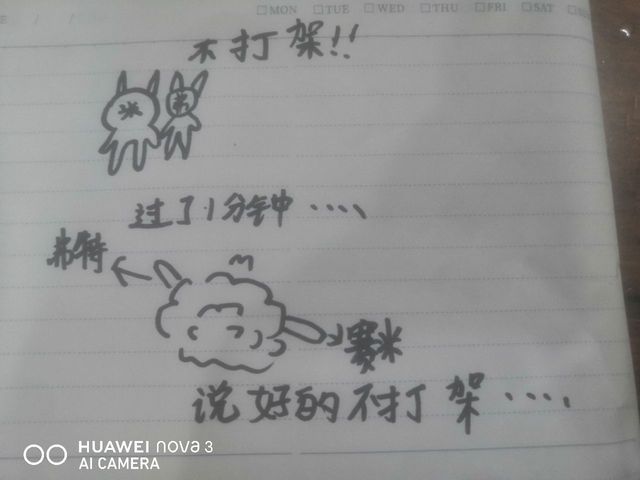 MON TUE WED THU FRI SAT
不打架!!
米 弗
过了1分钟····
弗特
赛米
说好的不打架····
HUAWEI nova 3
AI CAMERA